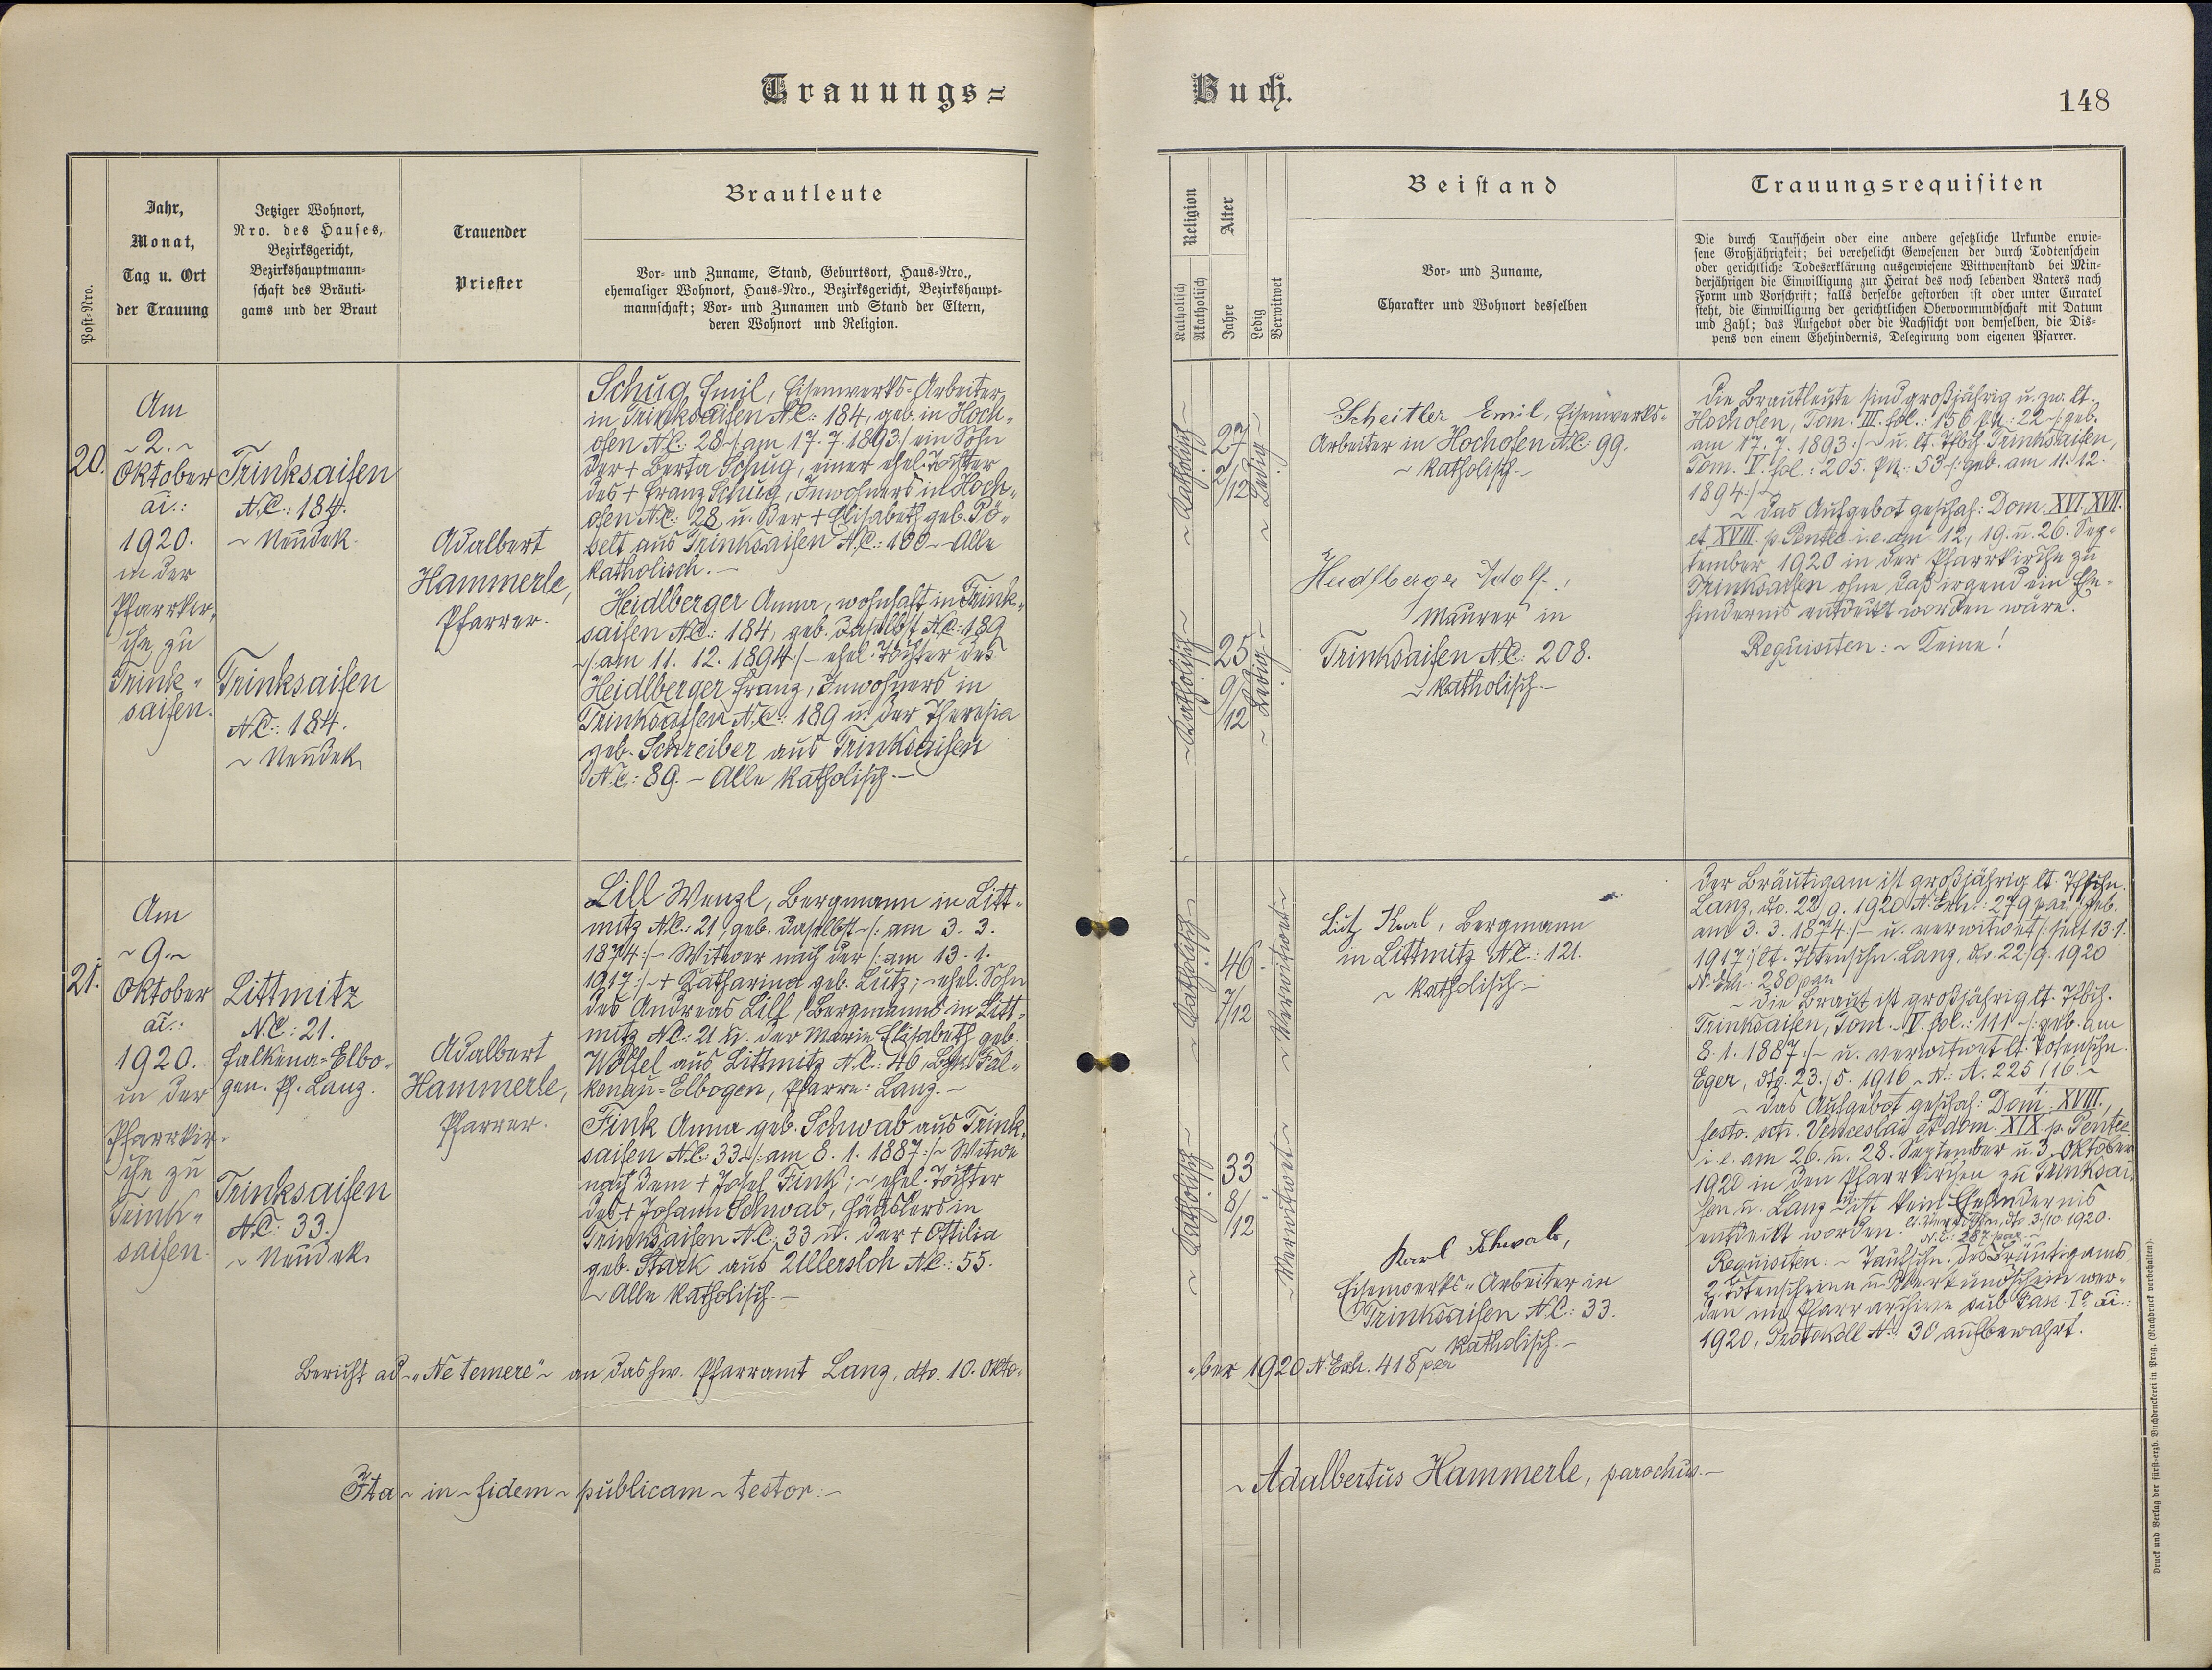 Trauungs=
Buch.
148
Post-Nro.
Jahr,
Monat,
Tag u. Ort
der Trauung
Jetziger Wohnort,
Nro. des Hauses,
Bezirksgericht,
Bezirkshauptmann-
schaft des Bräuti-
gams und der Braut
Trauender
Priester
Brautleute
Vor- und Zuname, Stand, Geburtsort, Haus-Nro.,
ehemaliger Wohnort, Haus-Nro., Bezirksgericht, Bezirkshaupt-
mannschaft; Vor- und Zunamen und Stand der Eltern,
deren Wohnort und Religion.
Religion
Katholisch
Akatholisch
Alter
Jahre
Ledig
Verwitwet
Beistand
Vor- und Zuname,
Charakter und Wohnort desselben
Trauungsrequisiten
Die durch Taufschein oder eine andere gesetzliche Urkunde erwie-
sene Großjährigkeit; bei verehelicht Gewesenen der durch Todtenschein
oder gerichtliche Todeserklärung ausgewiesene Wittwenstand bei Min-
derjährigen die Einwilligung zur Heirat des noch lebenden Vaters nach
Form und Vorschrift; falls derselbe gestorben ist oder unter Curatel
steht, die Einwilligung der gerichtlichen Obervormundschaft mit Datum
und Zahl; das Aufgebot oder die Nachsicht von demselben, die Dis-
pens von einem Ehehindernis, Delegirung vom eigenen Pfarrer.
20.
Am
~ 2. ~
Oktober
ai.:
1920.
in der
Pfarrkir-
che zu
Trink-
saifen.
Trinksaifen
N.C.: 184.
~ Neudek.
Trinksaifen
N.C.: 184.
~ Neudek.
Adalbert
Hammerle,
Pfarrer.
Schug Emil, Eisenwerks-Arbeiter
in Trinksaifen N.C.: 184, geb. in Hoch-
ofen N.C.: 28 /: am 17. 7. 1893 :/ ein Sohn
der + Berta Schug, einer ehel. Tochter
des + Franz Schug, Inwohners in Hoch-
ofen N.C.: 28 u. der + Elisabeth geb. Pö-
belt aus Trinksaifen N.C.: 100 ~ Alle
katholisch. —
Heidlberger Anna, wohnhaft in Trink-
saifen N.C.: 184, geb. daselbst N.C.: 189
~/: am 11. 12. 1894 :/~ ehel. Tochter des
Heidlberger Franz, Inwohners in
Trinksaifen N.C.: 189 u. der Theresia
geb. Schreiber aus Trinksaifen
N.C.: 89. ~ Alle katholisch. —
~ Katholisch ~
27
2/12
~ Ledig ~
~ Katholisch ~
25
9/12
~ Ledig ~
Scheitler Emil, Eisenwerks-
Arbeiter in Hochofen N.C.: 99.
~ katholisch. ~
Heidlberger Adolf,
Maurer in
Trinksaifen N.C.: 208.
~ katholisch. —
Die Brautleute sind großjährig u. zw. lt.
Hochofen, Tom. III. fol.: 156 p.N.: 22 ~/: geb.
am 17. 7. 1893 :/~ u. lt. Tfbch. Trinksaifen,
Tom. V. fol.: 205. p.N.: 53 ~/: geb. am 11. 12.
1894 :/~
~ Das Aufgebot geschah: Dom. XVI. XVII.
et XVIII. p. Pentec i. e. am 12., 19. u. 26. Sep-
tember 1920 in der Pfarrkirche zu
Trinksaifen ohne daß irgend ein Ehe-
hindernis entdeckt worden wäre.
Requisiten: ~ Keine!
21.
Am
~ 9. ~
Oktober
ai.:
1920.
in der
Pfarrkir-
che zu
Trink-
saifen.
Littmitz
N.C.: 21.
Falkenau-Elbo-
gen. Pf. Lanz.
Trinksaifen
N.C.: 33.
~ Neudek.
Adalbert
Hammerle,
Pfarrer.
Lill Wenzl, Bergmann in Litt-
mitz N.C.: 21, geb. daselbst ~/: am 3. 3.
1874 :/~ Witwer nach der /: am 13. 1.
1917 :/~ + Katharina geb. Lutz; ~ ehel. Sohn
des Andreas Lill, Bergmanns in Litt-
mitz N.C.: 21 u. der Marie Elisabeth geb.
Wölfel aus Littmitz N.C.: 46, Fal-
kenau-Elbogen, Pfarre: Lanz. ~
Fink Anna geb. Schwab aus Trink-
saifen N.C.: 33 ~/: am 8. 1. 1887 :/~ Witwe
nach dem + Josef Fink; ~ ehel. Tochter
des + Johann Schwab, Häuslers in
Trinksaifen N.C.: 33 u. der + Ottilia
geb. Stark aus Ullersloh N.C.: 55.
~ Alle katholisch. —
~ Katholisch ~
46
7/12
~ Verwitwet ~
~ Katholisch ~
33
8/12
~ Verwitwet ~
Lutz Karl, Bergmann
in Littmitz N.C.: 121.
~ katholisch. —
Karl Schwab,
Eisenwerks-Arbeiter in
Trinksaifen N.C.: 33.
katholisch. —
Der Bräutigam ist großjährig lt. Tfschn.
Lanz, dto. 22/9. 1920 N. Exh.: 279 par, /: geb.
am 3. 3. 1874 :/~ u. verwitwet /: seit 13. 1.
1917 :/ lt. Totenschn. Lanz, do. 22/9. 1920
N. Exh.: 280 par.
~ Die Braut ist großjährig lt. Tfbch.
Trinksaifen, Tom. V. fol.: 111 ~/: geb. am
8. 1. 1887 :/~ u. verwitwet lt. Totenschn.
Eger, dto. 23./5. 1916 ~ N.: A. 225/16. ~
~ Das Aufgebot geschah: Dom. XVIII.,
festo. scti. Venceslai et dom. XIX. p. Pentec
i. e. am 26. u. 28. September u. 3. Oktober
1920 in den Pfarrkirchen zu Trinksai-
fen u. Lanz u. ist kein Ehehindernis
entdeckt worden. lt. dto 3./10. 1920.
N.E.: 287 par. ~
Requisiten: ~ Taufschn. des Bräutigams,
2 Totenscheine u. Verkündschein wer-
den im Pfarrarchive sub Fasc. I° ai.:
1920, Protokoll N.: 30 aufbewahrt.
Bericht ad ~ „Ne temere" ~ an das hw. Pfarramt Lanz, dto. 10. Okto-
ber 1920 N. Exh. 418 par
Ita ~ in ~ fidem ~ publicam ~ testor: ~
~ Adalbertus Hammerle, parochus. —
Druck und Verlag der fürst-erzb. Buchdruckerei in Prag. (Nachdruck vorbehalten).